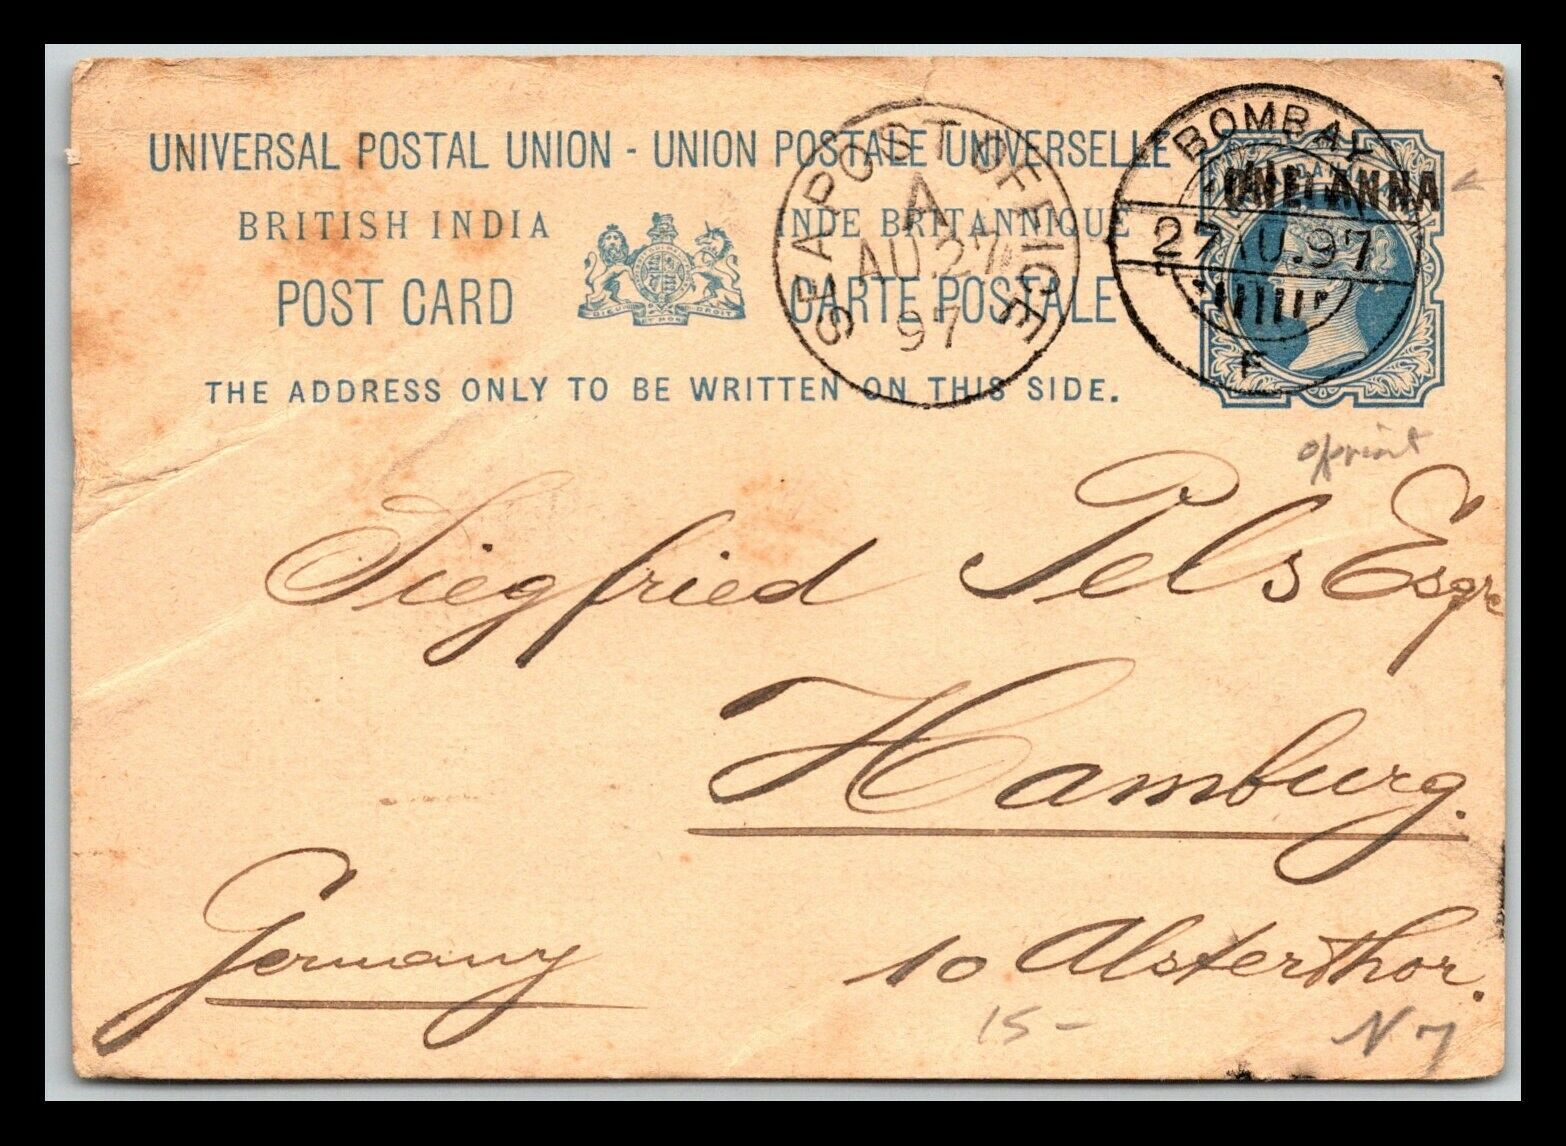 UNIVERSAL POSTAL UNION - UNION POSTALE UNIVERSELLE
BRITISH INDIA INDE BRITANNIQUE
POST CARD CARTE POSTALE
DIEU ET MON DROIT
THE ADDRESS ONLY TO BE WRITTEN ON THIS SIDE.
SEA POST OFFICE
A
AU.27
97
BOMBAY
ONE ANNA
27 AU.97
F
o/print
Siegfried Pels Esqre
Hamburg.
Germany
10 Alsterthor.
15-
N 7